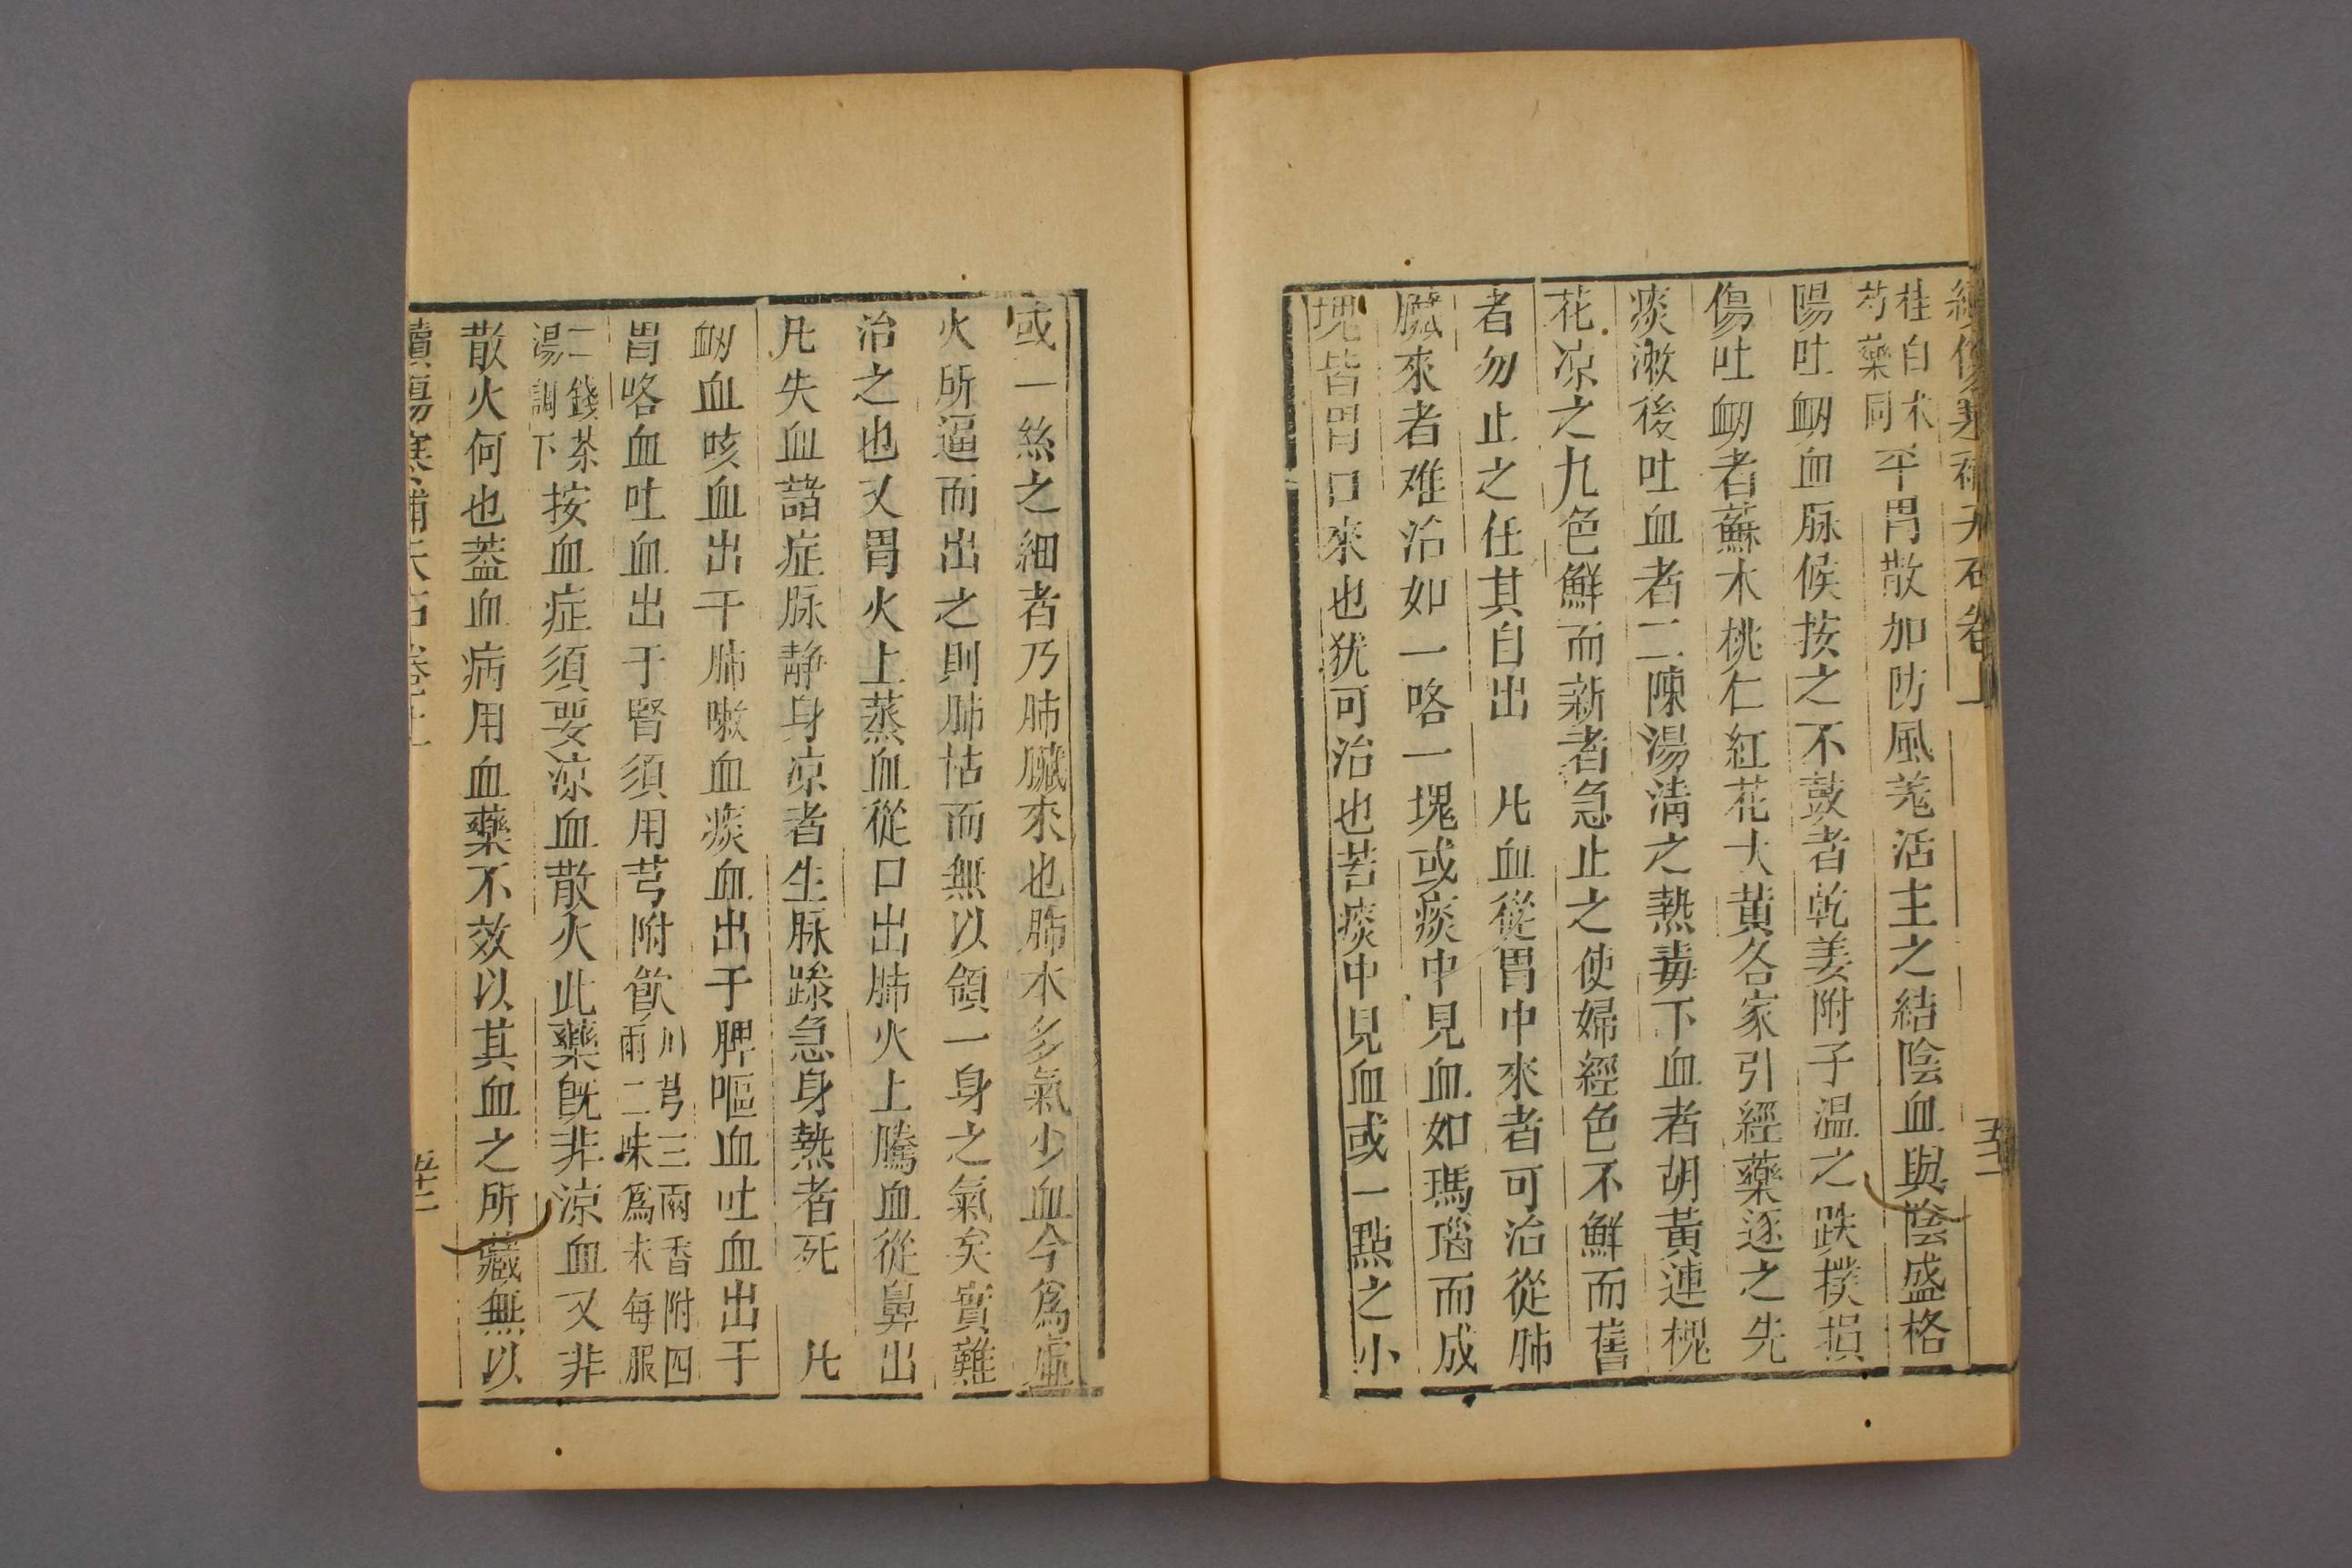 續傷寒補天石卷上
桂白朮芍藥同平胃散加防風羗活主之結陰血與陰盛格
陽吐衂血脉候按之不鼓者乾姜附子温之跌撲損
傷吐衂者蘇木桃仁紅花大黃各家引經藥逐之先
痰漱後吐血者二陳湯清之熱毒下血者胡黃連槐
花凉之九色鮮而新者急止之使婦經色不鮮而舊
者勿止之任其自出　凡血從胃中來者可治從肺
臟來者难治如一咯一塊或痰中見血如瑪瑙而成
塊皆胃口來也犹可治也若痰中見血或一點之小
或一絲之細者乃肺臟來也肺本多氣少血今爲虛
火所逼而出之則肺怙而無以領一身之氣矣實難
治之也又胃火上蒸血從口出肺火上騰血從鼻出
凡失血諸症脉靜身凉者生脉躁急身熱者死　凡
衂血咳血出于肺嗽血痰血出于脾嘔血吐血出于
胃咯血吐血出于腎須用芎附飲川芎三兩香附四兩二味爲末每服
二錢茶湯調下按血症須要凉血散火此藥旣非凉血又非
散火何也蓋血病用血藥不效以其血之所藏無以
續傷寒補天石卷上